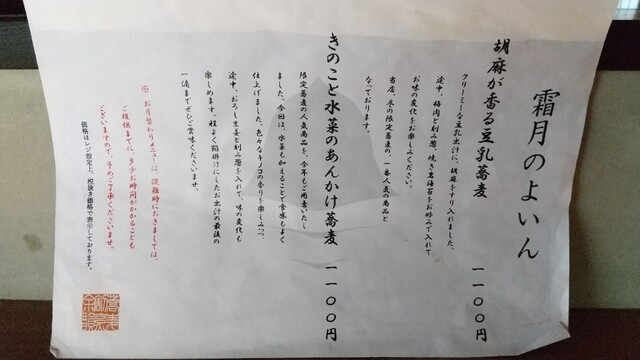 霜月のよいん
胡麻が香る豆乳蕎麦 一一〇〇円
クリーミーな豆乳出汁に、胡麻をすり入れました。
途中、梅肉と刻み葱、焼き岩海苔をお好みで入れて
お味の変化をお楽しみください。
当店、冬の限定蕎麦の、一番人気の商品と
なっております。
きのこと水菜のあんかけ蕎麦 一一〇〇円
限定蕎麦の人気商品を、今年もご用意いたし
ました。今回は、水菜も加えることで食感もよく
仕上げました。色々なキノコの香りを楽しみつつ、
途中、おろし生姜と刻み葱を入れて、味の変化も
楽しめます。程よく餡掛汁にしたお出汁の最後の
一滴までぜひご賞味くださいませ。
※ お月替わりメニューは、混雑時におきましては、
ご提供までに、多少お時間がかかることも
ございますので、予めご了承くださいませ。
価格はレジ設定上、税抜き価格で表示しております。